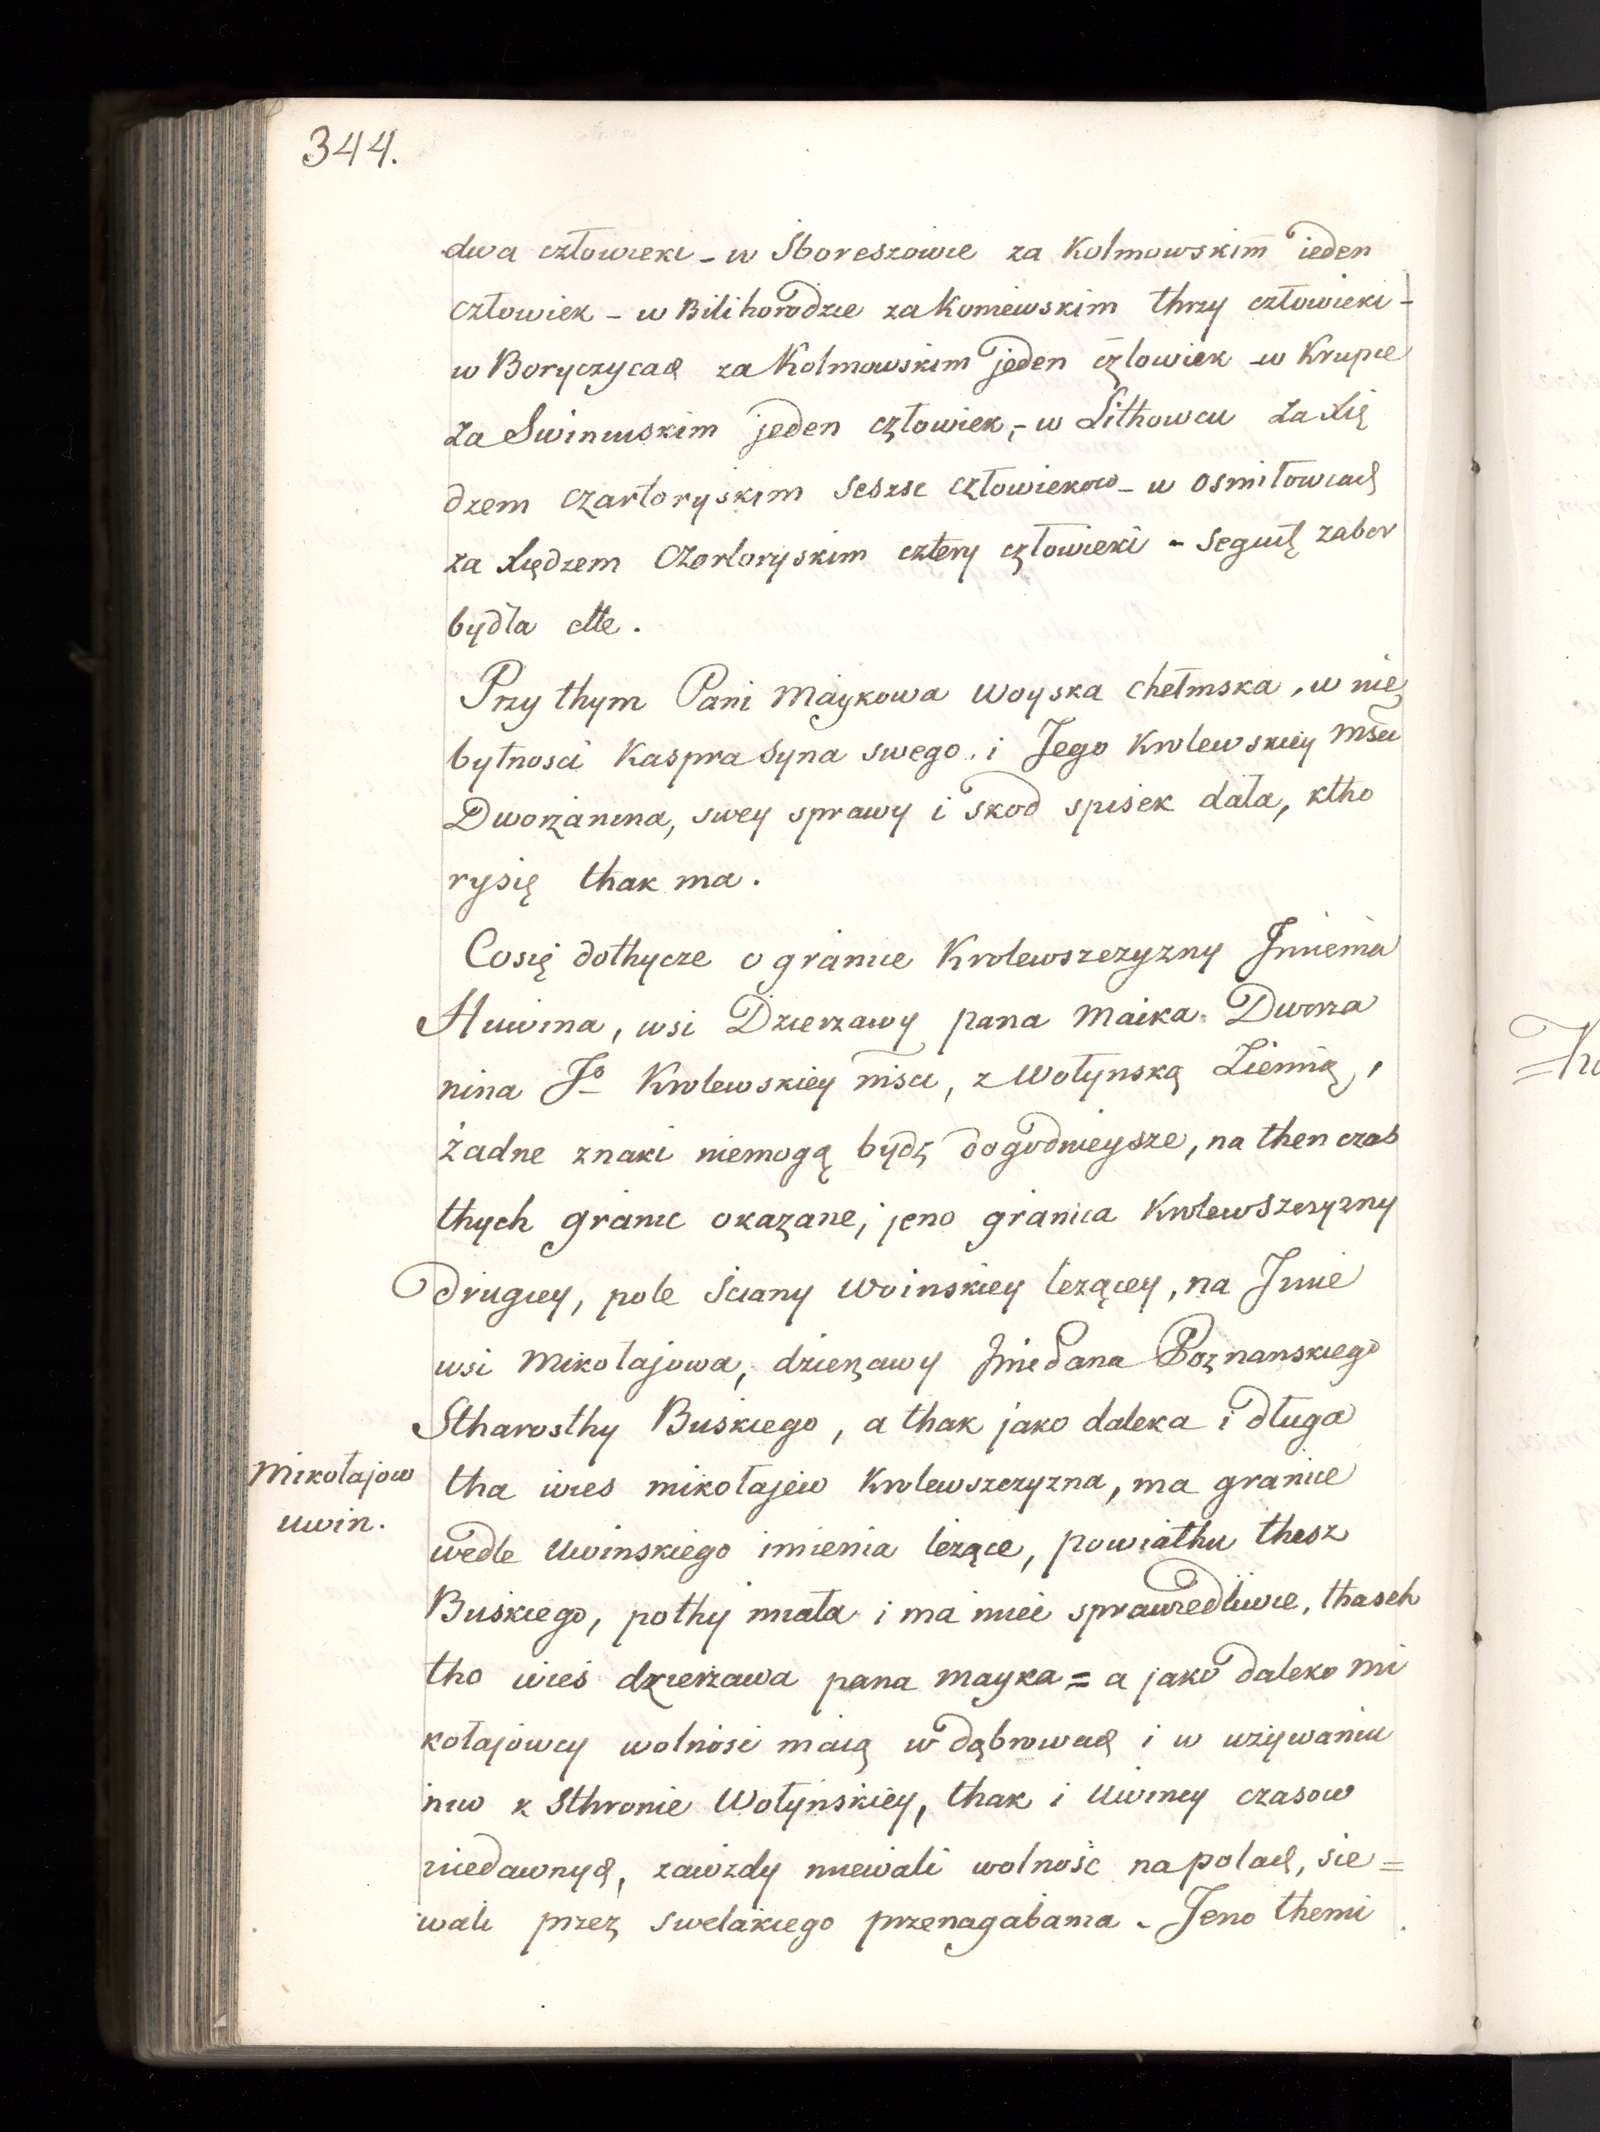 344.
dwa człowieki - w Sboreszowie za Kolmowskim ieden
człowiek - w Bilihorodzie za Koniewskim thrzy człowieki -
w Boryczycach za Kolmowskim jeden człowiek - w Krupie
za Swiniuskim jeden człowiek, - w Lithowcu za Xię
dzem Czartoryskim seszsc człowiekow - w Osmiłowcach
za Xiędzem Czortoryskim cztery człowieki - Seguitę zabor
bydła etc.
Przy thym Pani Maykowa Woyska Chełmska, w nie,
bytnosci Kaspra Syna swego i Jego Krolewskiey Msci
Dworzanina, swey sprawy i skod spisek dała, ktho
rysię thak ma.
Cosię dothycze o granice Krolewszczyzny Jmienia
Huwina, wsi Dzierzawy pana Maika Dworza
nina Jo Krolewskiey msci, z Wołynską Ziemią,
żadne znaki niemogą bydz dogodnieysze, na then czas
thych granic okazane, jeno granica Krolewszczyzny
drugiey, pole sciany Woinskiey lezącey, na Jmie
wsi Mikołajowa, dzierzawy Jmie Pana Poznanskiego
Stharosthy Buskiego, a thak jako daleka i długa
Mikołajow
uwin.
tha wies mikołajew Krolewszczyzna, ma granice
wedle Uwinskiego imienia leżące, powiathu thesz
Buskiego, pothy miała i ma miec sprawiedliwie, thasch
tho wieś dzierżawa pana mayka = a jako daleko Mi
kołajowcy wolnosci maią w dąbrowach i w używaniu
niw k Sthronie Wołyńskiey, thak i Uwincy czasow
niedawnych, zawzdy miewali wolność na polach, sie =
wali przez swelakiego przenagabania. Jeno themi